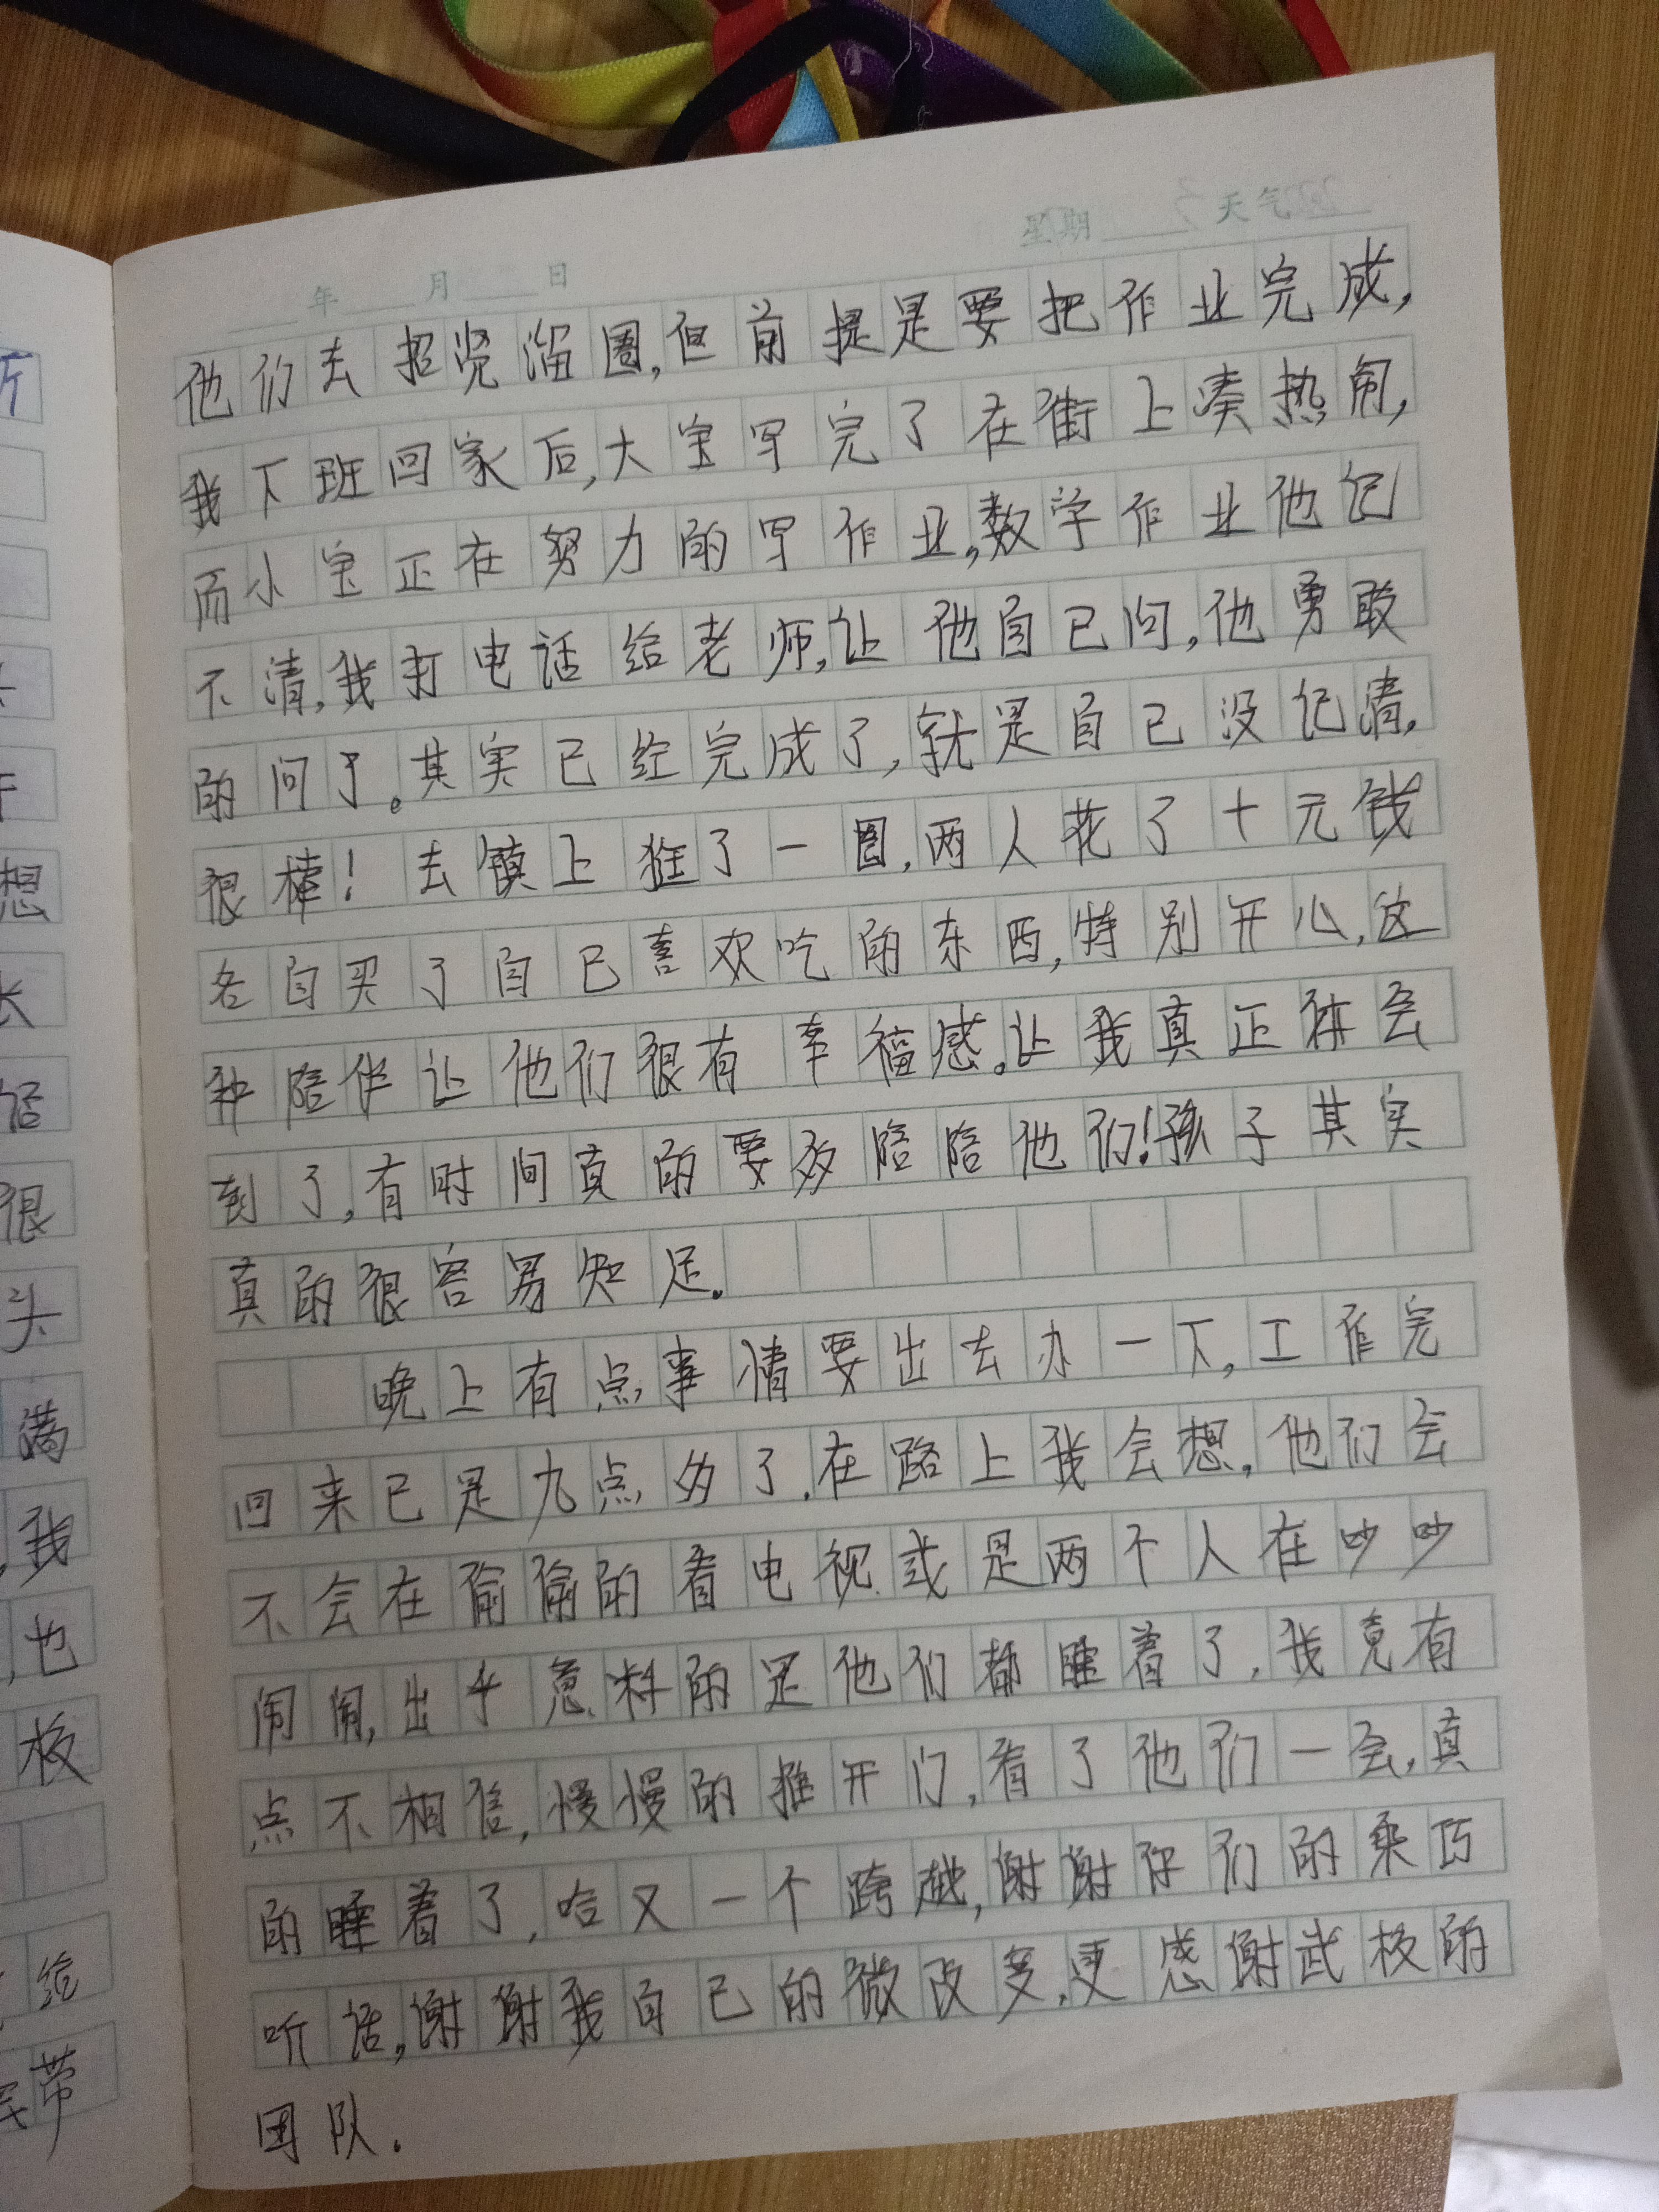 年 月 日 星期 天气
他们去招贤溜圈,但前提是要把作业完成,
我下班回家后,大宝写完了在街上凑热闹,
而小宝正在努力的写作业,数学作业他记
不清,我打电话给老师,让他自己问,他勇敢
的问了。其实已经完成了,就是自己没记清,
很棒!去镇上逛了一圈,两人花了十元钱
各自买了自己喜欢吃的东西,特别开心,这
种陪伴让他们很有幸福感。让我真正体会
到了,有时间真的要多陪陪他们!孩子其实
真的很容易知足。
晚上有点事情要出去办一下,工作完
回来已是九点多了,在路上我会想,他们会
不会在偷偷的看电视或是两个人在吵吵
闹闹,出乎意料的是他们都睡着了,我竟有
点不相信,慢慢的推开门,看了他们一会,真
的睡着了,哈又一个跨越,谢谢你们的乖巧
听话,谢谢我自己的微改变,更感谢武校的
团队.
想
长
话
很
头
满
,我
,也
校
给
带